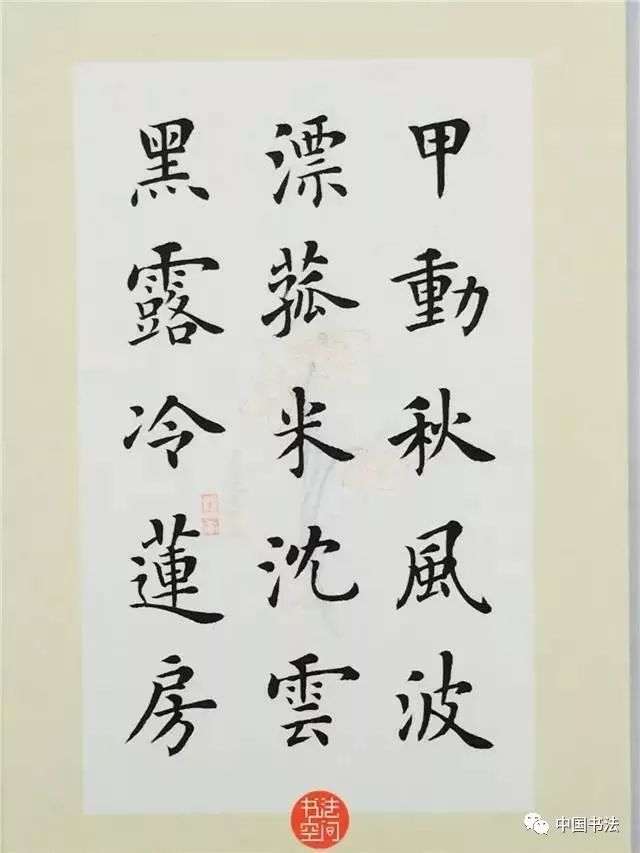 甲動秋風波
漂菰米沈雲
黑露冷蓮房
书法
空间
中国书法